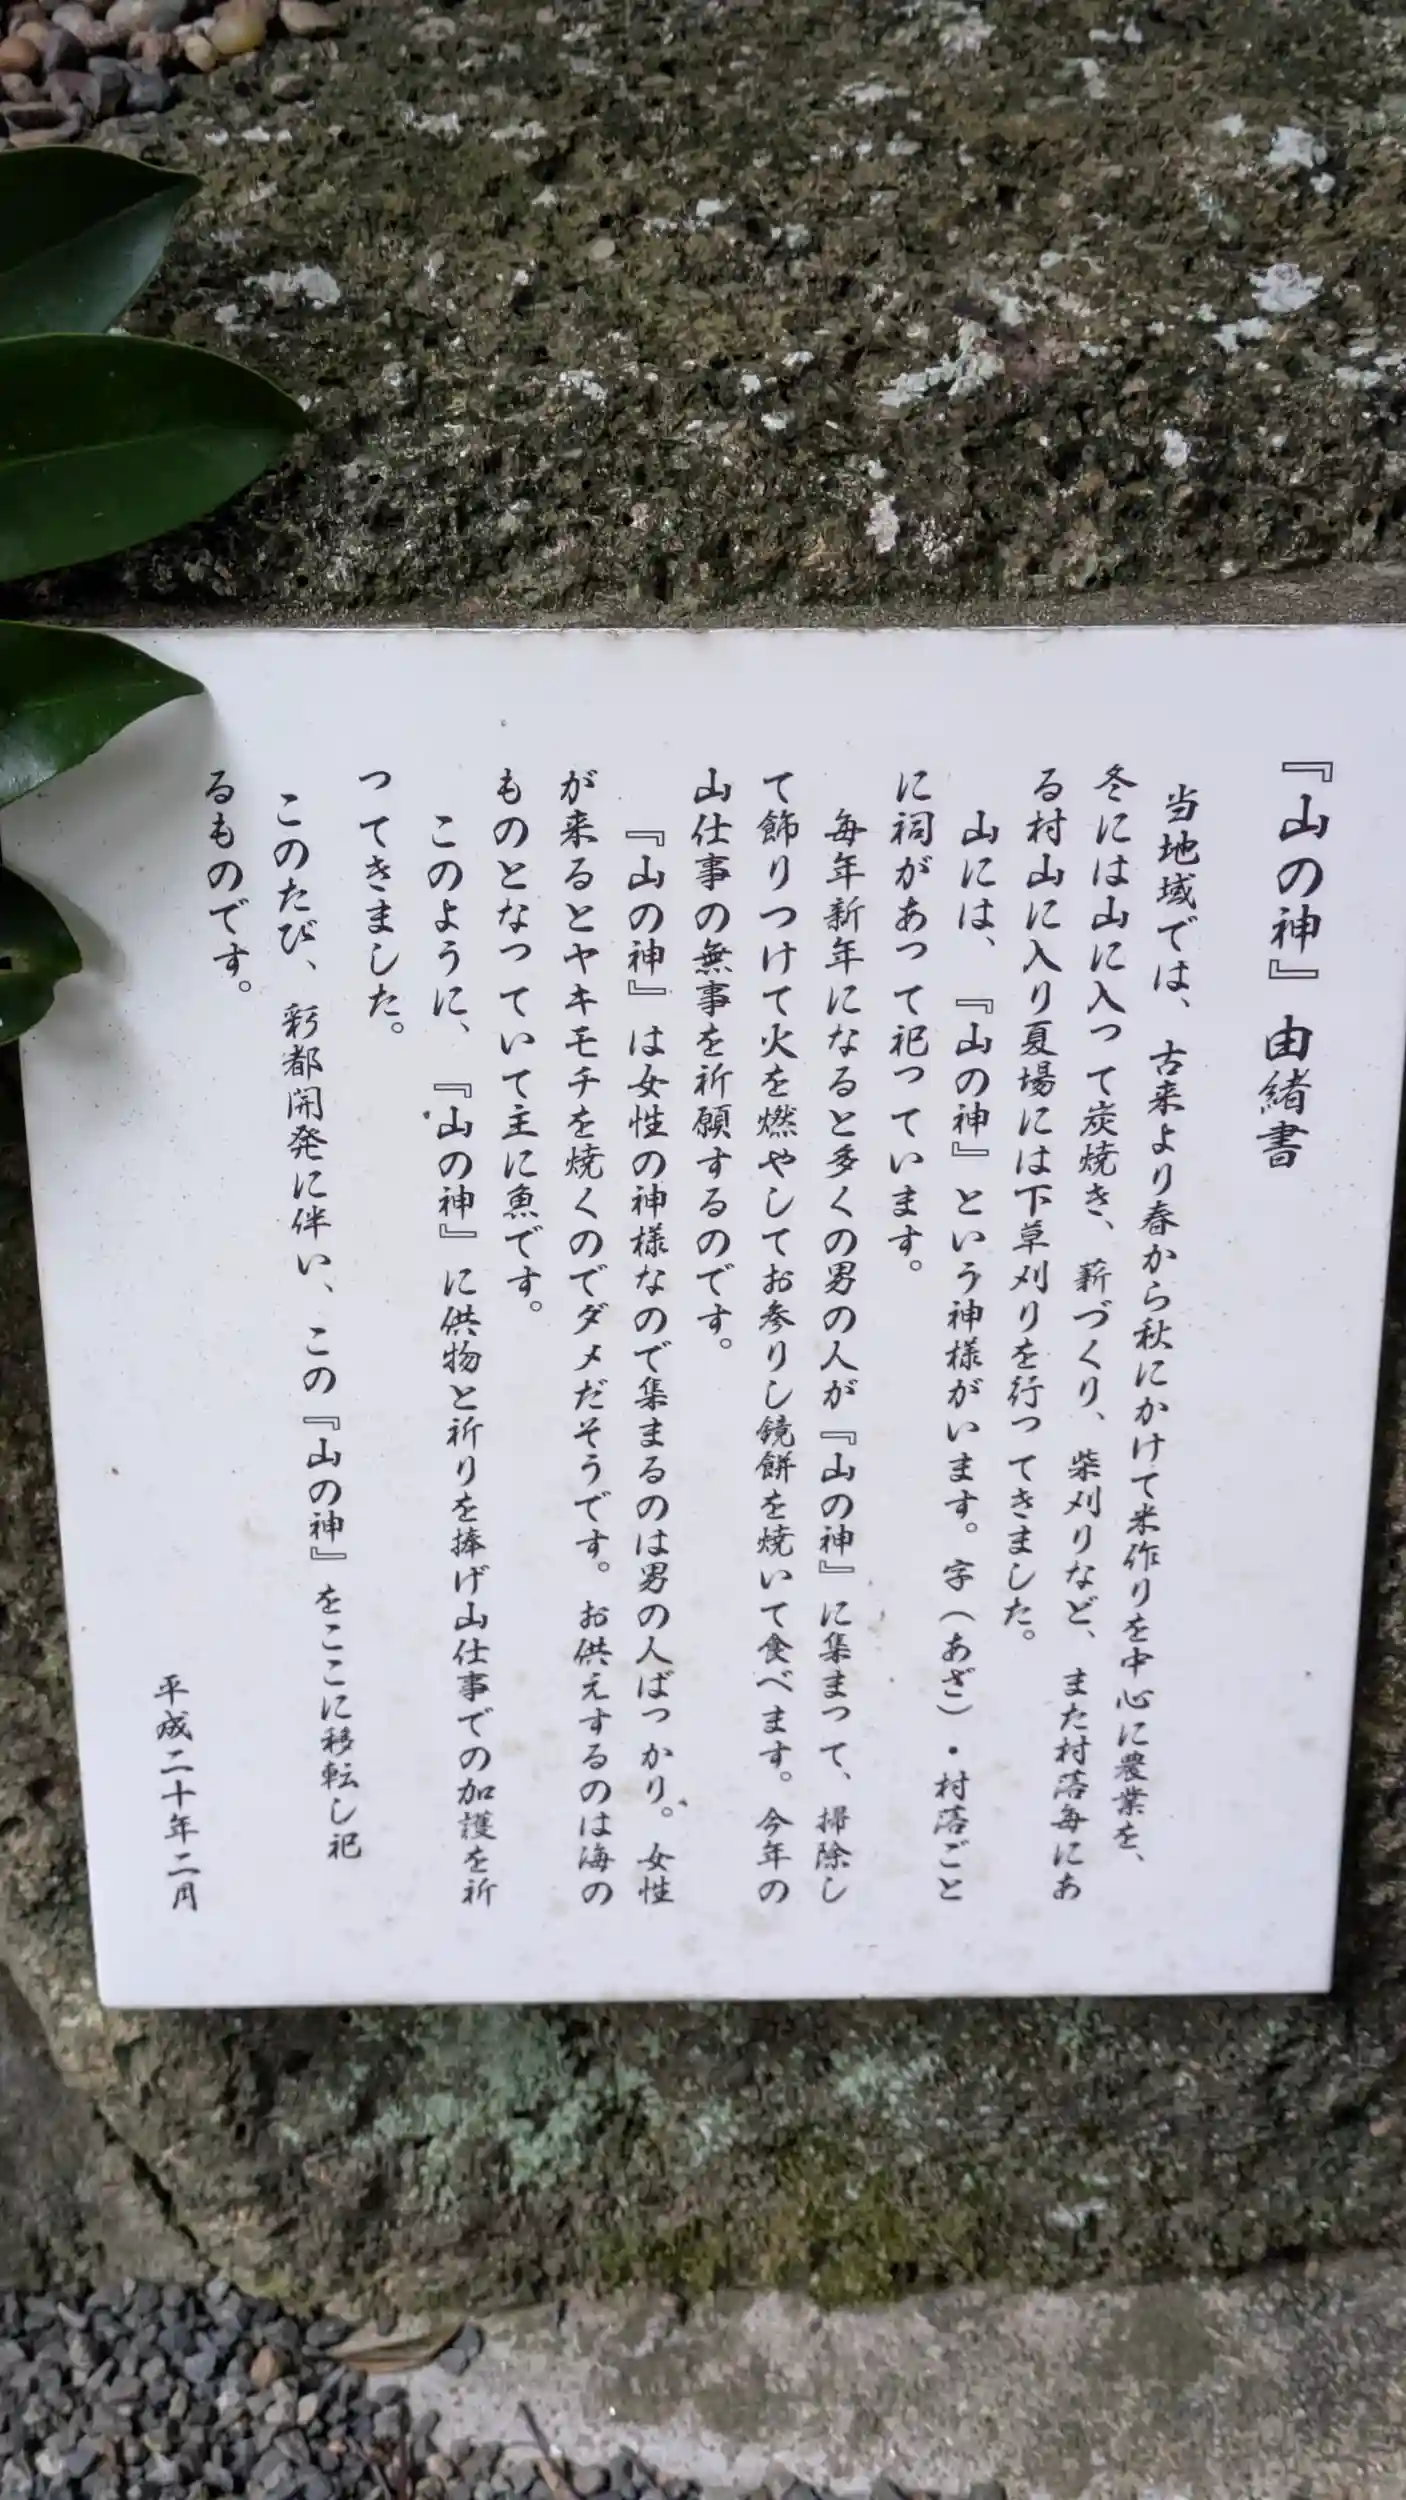 『山の神』由緒書
当地域では、古来より春から秋にかけて米作りを中心に農業を、
冬には山に入つて炭焼き、薪づくり、柴刈りなど、また村落毎にあ
る村山に入り夏場には下草刈りを行つてきました。
山には、『山の神』という神様がいます。字（あざ）・村落ごと
に祠があつて祀つています。
毎年新年になると多くの男の人が『山の神』に集まつて、掃除し
て飾りつけて火を燃やしてお参りし鏡餅を焼いて食べます。今年の
山仕事の無事を祈願するのです。
『山の神』は女性の神様なので集まるのは男の人ばつかり。女性
が来るとヤキモチを焼くのでダメだそうです。お供えするのは海の
ものとなつていて主に魚です。
このように、『山の神』に供物と祈りを捧げ山仕事での加護を祈
つてきました。
このたび、彩都開発に伴い、この『山の神』をここに移転し祀
るものです。
平成二十年二月